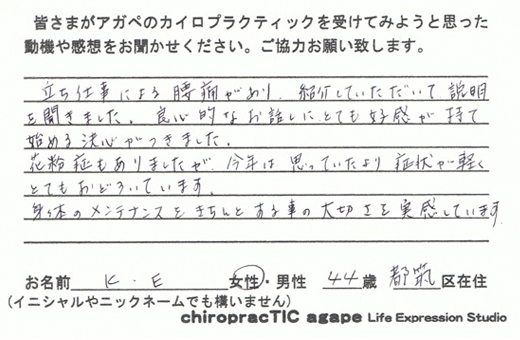 皆さまがアガペのカイロプラクティックを受けてみようと思った
動機や感想をお聞かせください。ご協力お願い致します。
立ち仕事による腰痛があり、紹介していただいて説明
を聞きました。良心的なお話しにとても好感が持て
始める決心がつきました。
花粉症もありましたが、今年は思っていたより症状が軽く
とてもおどろいています。
身体のメンテナンスをきちんとする事の大切さを実感しています。
お名前 K.E 女性・男性 44歳 都筑区在住
(イニシャルやニックネームでも構いません)
chiropracTIC agape Life Expression Studio